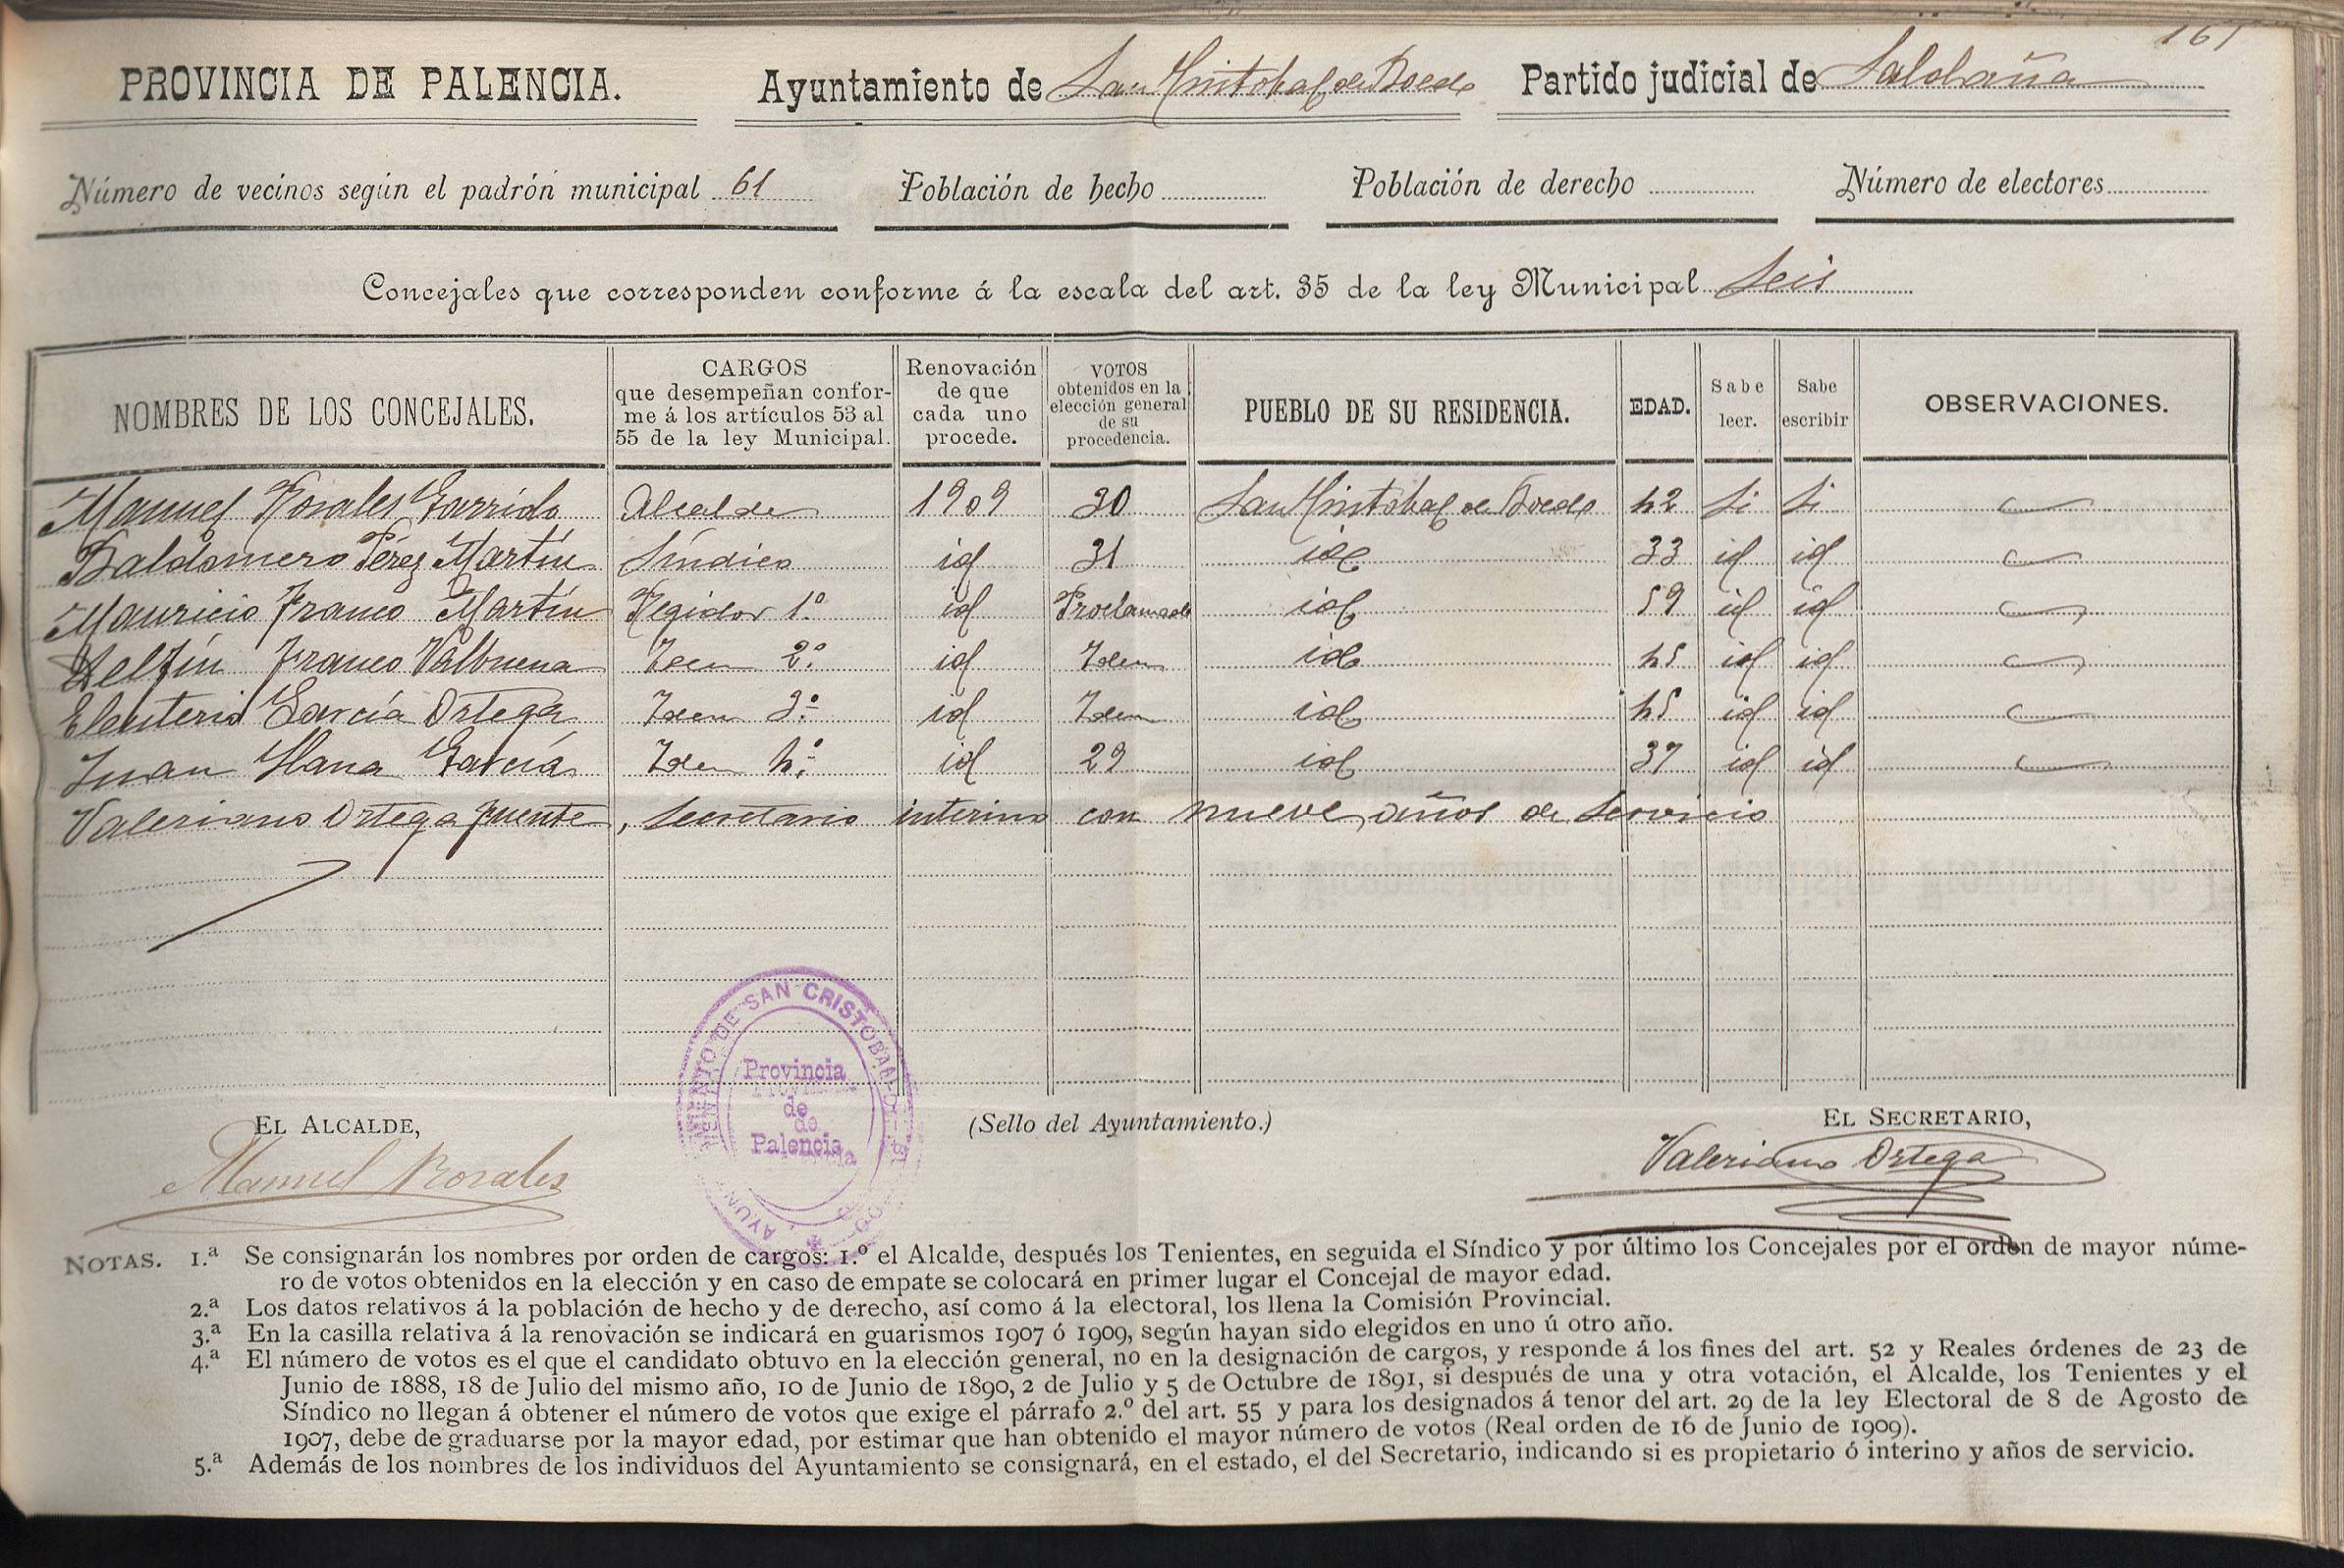 161
PROVINCIA DE PALENCIA. Ayuntamiento de San Cristobal de Boedo Partido judicial de Saldaña
Número de vecinos según el padrón municipal 61 Población de hecho Población de derecho Número de electores
Concejales que corresponden conforme á la escala del art. 35 de la ley Municipal Seis
NOMBRES DE LOS CONCEJALES. CARGOS que desempeñan confor-me á los artículos 53 al 55 de la ley Municipal. Renovación de que cada uno procede. VOTOS obtenidos en la elección general de su procedencia. PUEBLO DE SU RESIDENCIA. EDAD. Sabe leer. Sabe escribir OBSERVACIONES.
Manuel Rosales Garrido Alcalde 1909 30 San Cristóbal de Boedo 42 Si Si
Baldomero Pérez Martín Síndico id 31 id 33 id id
Mauricio Franco Martín Regidor 1º id Proclamado id 59 id id
Delfín Franco Valbuena Idem 2º id Idem id 45 id id
Eleuterio García Ortega Idem 3º id Idem id 45 id id
Juan Llana García Idem 4º id 29 id 37 id id
Valeriano Ortega Fuente, Secretario interino con nueve años de servicio
AYUNTAMIENTO DE SAN CRISTOBAL DE BOEDO
Provincia
de
Palencia
EL ALCALDE, (Sello del Ayuntamiento.) EL SECRETARIO,
Manuel Rosales Valeriano Ortega
NOTAS. 1.ª Se consignarán los nombres por orden de cargos: 1.º el Alcalde, después los Tenientes, en seguida el Síndico y por último los Concejales por el orden de mayor núme-
ro de votos obtenidos en la elección y en caso de empate se colocará en primer lugar el Concejal de mayor edad.
2.ª Los datos relativos á la población de hecho y de derecho, así como á la electoral, los llena la Comisión Provincial.
3.ª En la casilla relativa á la renovación se indicará en guarismos 1907 ó 1909, según hayan sido elegidos en uno ú otro año.
4.ª El número de votos es el que el candidato obtuvo en la elección general, no en la designación de cargos, y responde á los fines del art. 52 y Reales órdenes de 23 de
Junio de 1888, 18 de Julio del mismo año, 10 de Junio de 1890, 2 de Julio y 5 de Octubre de 1891, si después de una y otra votación, el Alcalde, los Tenientes y el
Síndico no llegan á obtener el número de votos que exige el párrafo 2.º del art. 55 y para los designados á tenor del art. 29 de la ley Electoral de 8 de Agosto de
1907, debe de graduarse por la mayor edad, por estimar que han obtenido el mayor número de votos (Real orden de 16 de Junio de 1909).
5.ª Además de los nombres de los individuos del Ayuntamiento se consignará, en el estado, el del Secretario, indicando si es propietario ó interino y años de servicio.